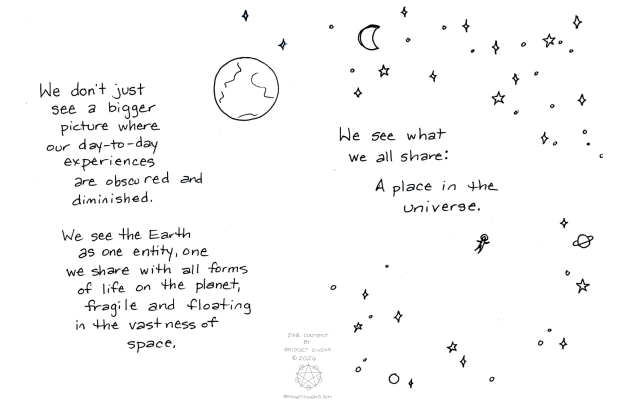 We don't just
see a bigger
picture where
our day-to-day
experiences
are obscured and
diminished.
We see the Earth
as one entity, one
we share with all forms
of life on the planet,
fragile and floating
in the vastness of
space.
We see what
we all share:
A place in the
universe.
ZINE CONTENT
BY
BRIDGET OWENS
© 2026
BRIDGETOWENS.COM